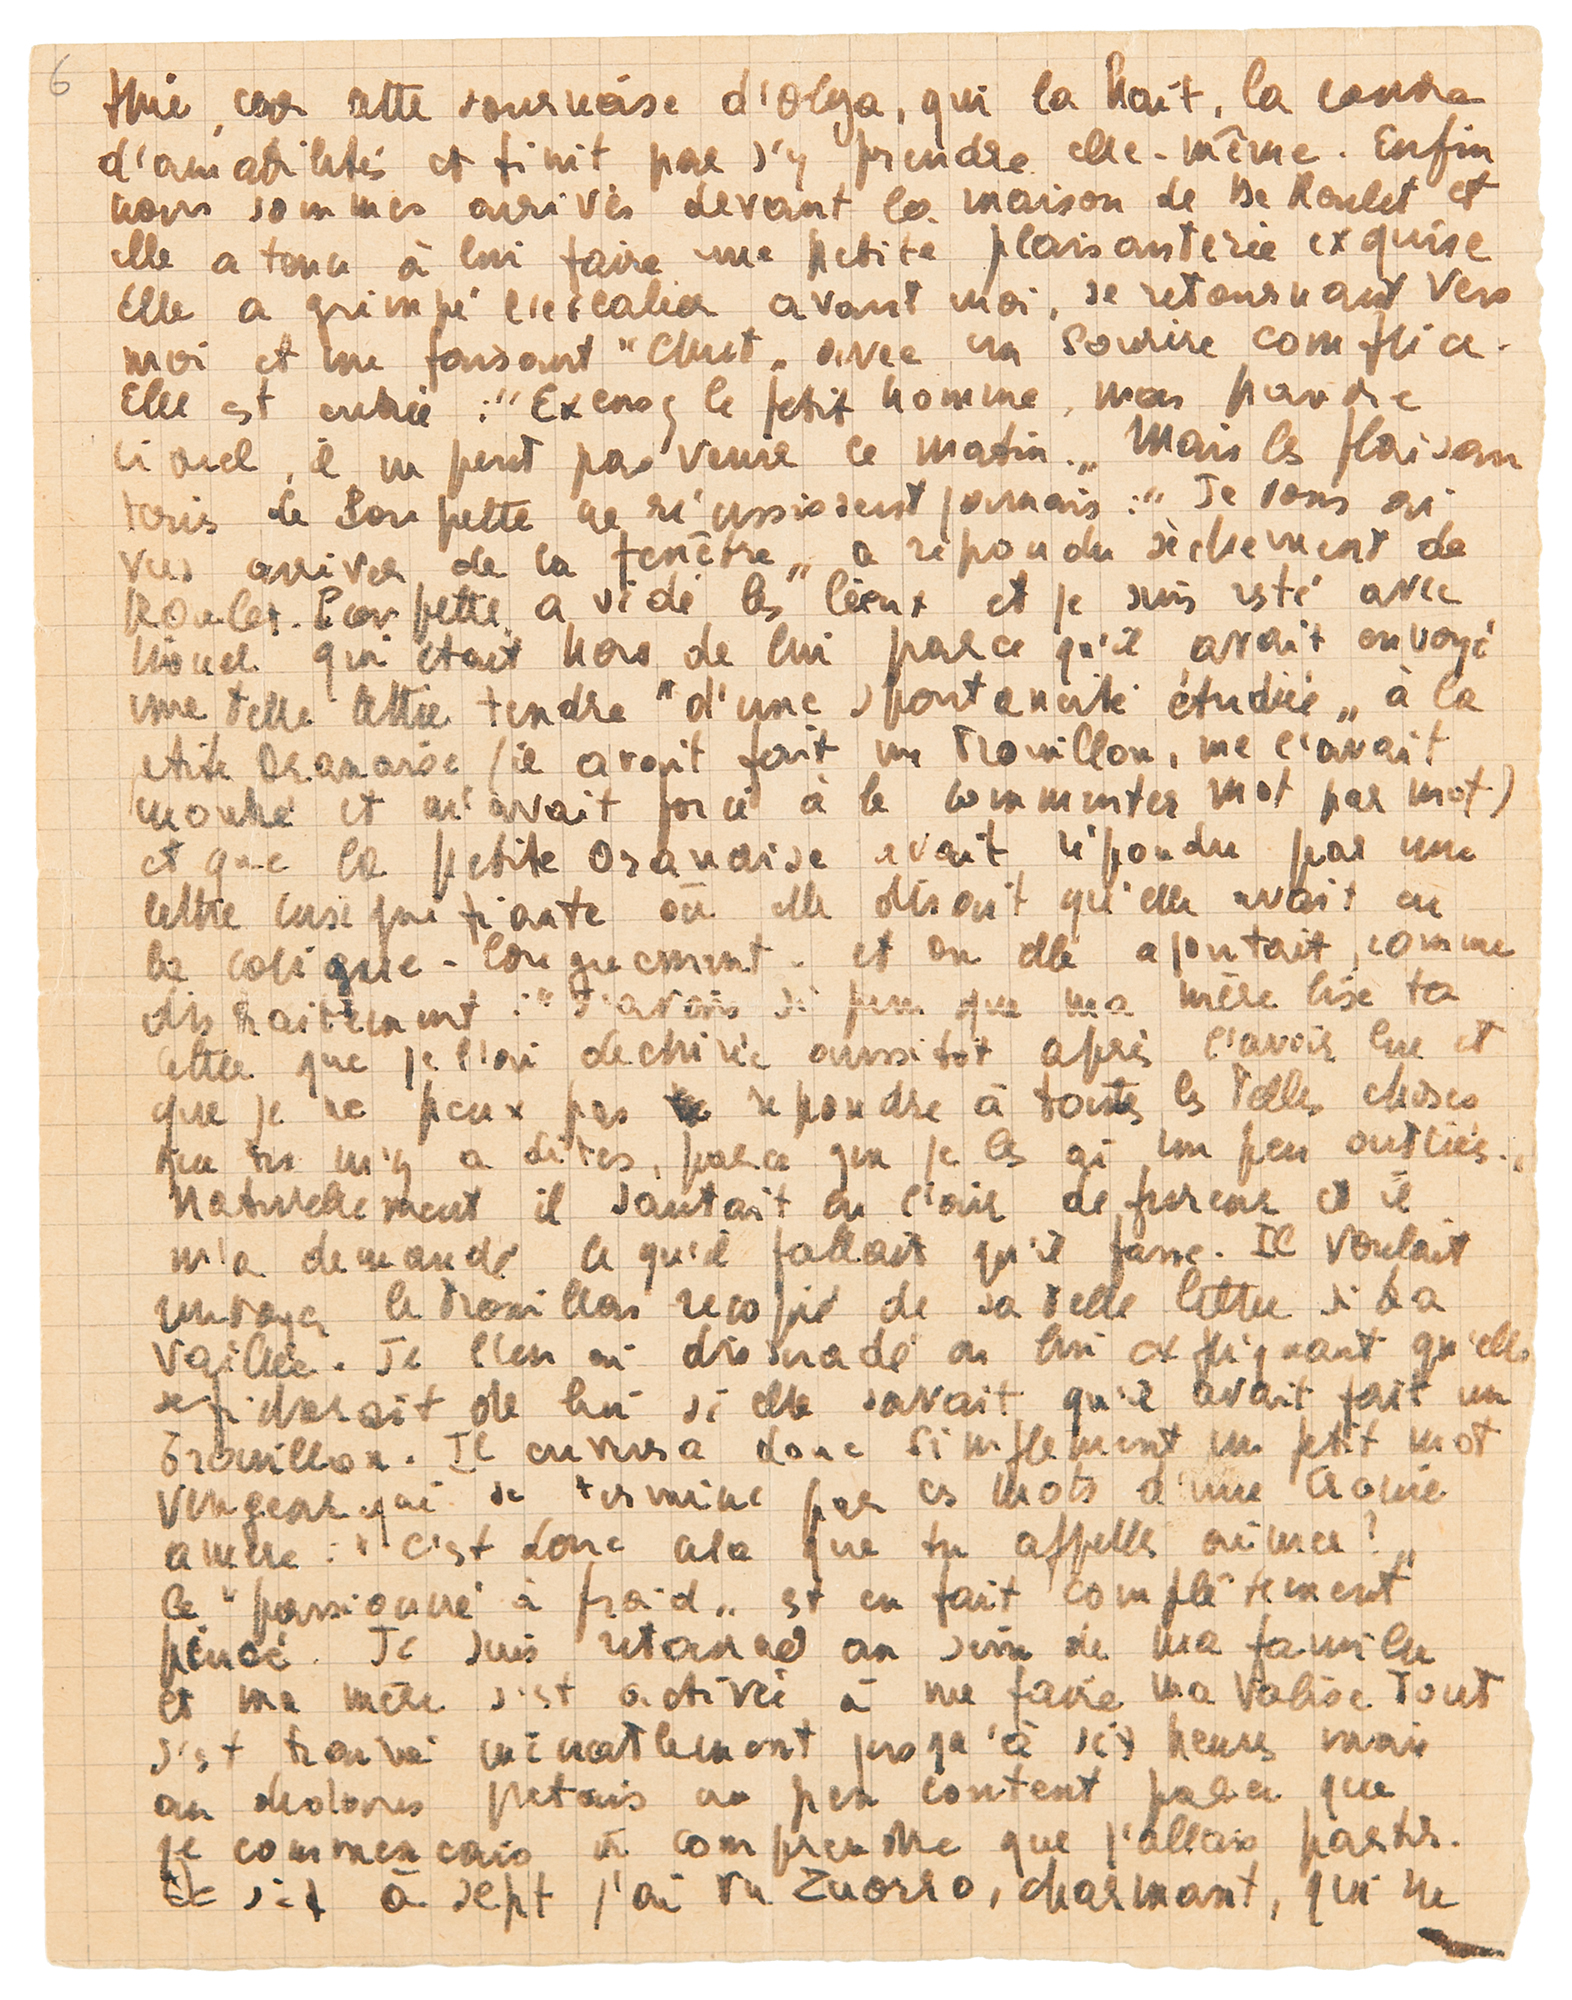 6
thie, car cette sournoise d'Olga, qui la hait, la couvre
d'amabilités et finit par s'y prendre elle-même. Enfin
nous sommes arrivés devant la maison de De Roulet et
elle a tenu à lui faire une petite plaisanterie exquise
Elle a grimpé l'escalier avant moi, se retournant vers
moi et me faisant "Chut" avec un sourire complice.
Elle est entrée : "Excusez le petit homme, mon pauvre
Lionel, il ne peut pas venir ce matin." Mais les plaisan
teries de Pouпette ne réussissent jamais : "Je vous ai
vus arriver de la fenêtre" a répondu sèchement de
Roulet. Poupette a vidé les lieux et je suis resté avec
Lionel qui était hors de lui parce qu'il avait envoyé
une belle lettre tendre "d'une spontanéité étudiée" à la
petite Oranaise (il avait fait un brouillon, me l'avait
montré et m'avait forcé à le commenter mot par mot)
et que la petite Oranaise avait répondu par une
lettre insignifiante où elle disait qu'elle avait eu
la colique - longuement - et où elle ajoutait, comme
distraitement : "J'avais si peur que ma mère lise ta
lettre que je l'ai déchirée aussitôt après l'avoir lue et
que je ne peux pas répondre à toutes les belles choses
que tu m'y a dites, parce que je les ai un peu oubliées."
Naturellement il sautait en l'air de fureur et il
m'a demandé ce qu'il fallait qu'il fasse. Il voulait
renvoyer le brouillon recopié de sa belle lettre si ba
vaillée. Je l'en ai dissuadé en lui expliquant qu'elle
se ficherait de lui si elle savait qu'il avait fait un
brouillon. Il enverra donc simplement un petit mot
vengeur qui se termine par ces mots d'une ironie
amère : "C'est donc cela que tu appelles aimer?"
Ce "passionné à froid" est en fait complètement
pincé. Je suis retourné au sein de ma famille
et ma mère s'est activée à me faire ma valise Tout
s'est trouvé jusqu'à six heures mais
au dehors j'étais un peu content parce que
je commençais à comprendre que j'allais partir.
De six à sept j'ai vu Zuorro, charmant, qui ne